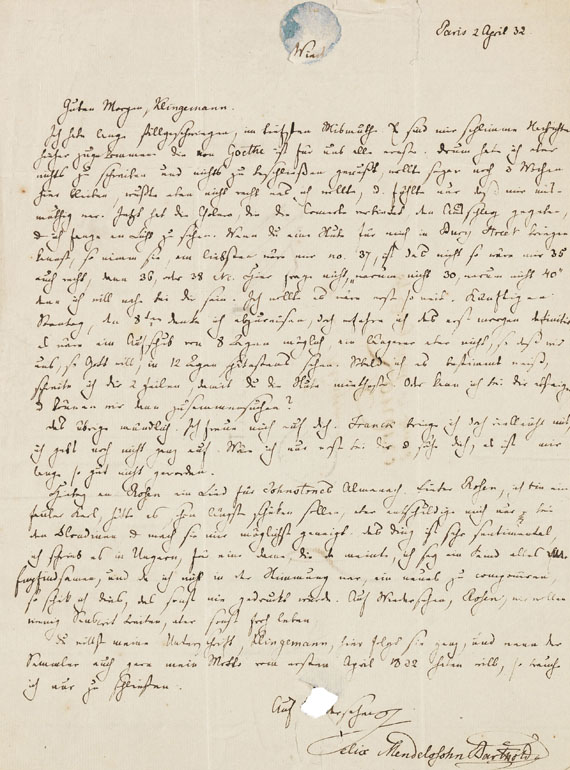 Paris 2 April 32
Wien
Guten Morgen, Klingemann.
Ich habe lange stillgeschwiegen, im tiefsten Mißmuthe & sind mir schlimme Nachrichten
hieher zugekommen; die von Goethe ist für uns alle ernst. Drum habe ich aber
nichts zu schreiben und nichts zu beschließen gewußt, wollte sogar noch 3 Wochen
hier bleiben, wußte eben nicht recht was ich wollte, & fühlte nur daß mir miß-
müthig war. Jetzt hat die Cholera, den die Concerte den Ausschlag gegeben,
& ich frage euch zu sehen. Wenn du eine Stube für mich in Bury Street kriegen
kannst, so nimm sie, am liebsten wäre mir no. 37, ist das nicht so wäre mir 35
auch recht, dann 36, oder 38 etc. Hier frage nicht, „warum nicht 30, warum nicht 40“
denn ich will nahe bei dir sein. Ich wollte es wäre erst so weit. Künftigen
Sonntag, den 8ten denke ich abzureisen, doch erfahre ich das erst morgen definitiv
es wäre ein Aufschub von 8 Tagen möglich, ein längerer aber nicht, so daß wir
uns, so Gott will, in 12 Tagen spätestens sehen. Sobald ich es bestimmt weiß,
schreibe ich die 2 Zeilen, damit du die Stube miethest. Oder kann ich bei dir absteigen
& können wir dann zusammen suchen?
Das Übrige mündlich. Ich freue mich auf dich. Francis bringe ich doch vielleicht mit,
ich gebe noch nicht ganz auf. Wäre ich nur erst bei dir & sähe dich, es ist mir
lange so gut nicht geworden.
Hierbei an Rosen ein Lied für Johnstones Almanach. Lieber Rosen, ich bin ein
fauler Kerl, hätte es schon längst schicken sollen, aber entschuldige mich nur bei
den Blondinen & mach sie mir möglichst geneigt. Das Ding ist sehr sentimental,
ich schrieb es in Ungarn, für eine Dame, die da meinte, ich sey ein Feind alles
Empfindsamen, und da ich nicht in der Stimmung war, ein neues zu componiren,
so schick ich dies, das sonst nie gedruckt wurde. Auf Wiedersehen, Rosen, wir wollen
wenig Sanskrit treiben, aber sonst froh leben.
Du willst meine Unterschrift, Klingemann, hier folgt sie ganz, und wenn der
Sammler auch gern mein Motto vom ersten April 1832 haben will, so brauche
ich nur zu schreiben.
Auf
Felix Mendelssohn Bartholdy